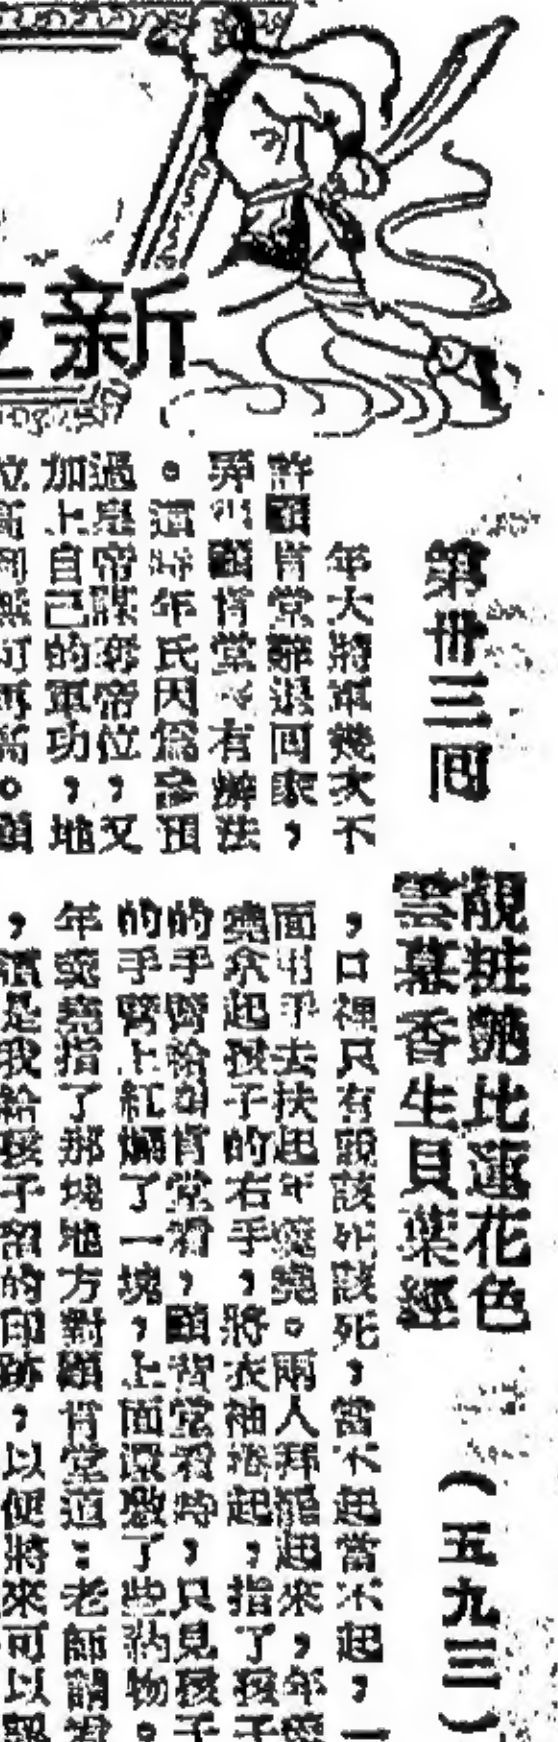 新
第卅三回
靚粧艷比蓮花色
雲幕香生貝葉經
(五九三)
年大將軍幾次不
許顧肯堂辭退回家，
弄得顧肯堂沒有辦法
。這時年氏因爲參預
過是帝謀奪帝位，又
加上自己的軍功，地
位高到無可再高。顧
，口裡只有說該死該死，當不起當不起，一
面用手去扶起年羹堯。兩人拜罷起來，年羹
堯拿起孩子的右手，將衣袖捲起，指了孩子
的手臂給顧肯堂看，顧肯堂看時，只見孩子
的手臂上紅爛了一塊，上面還敷了些藥物。
年羹堯指了那塊地方對顧肯堂道：老師請看
，這是我給孩子留的印跡，以便將來可以認